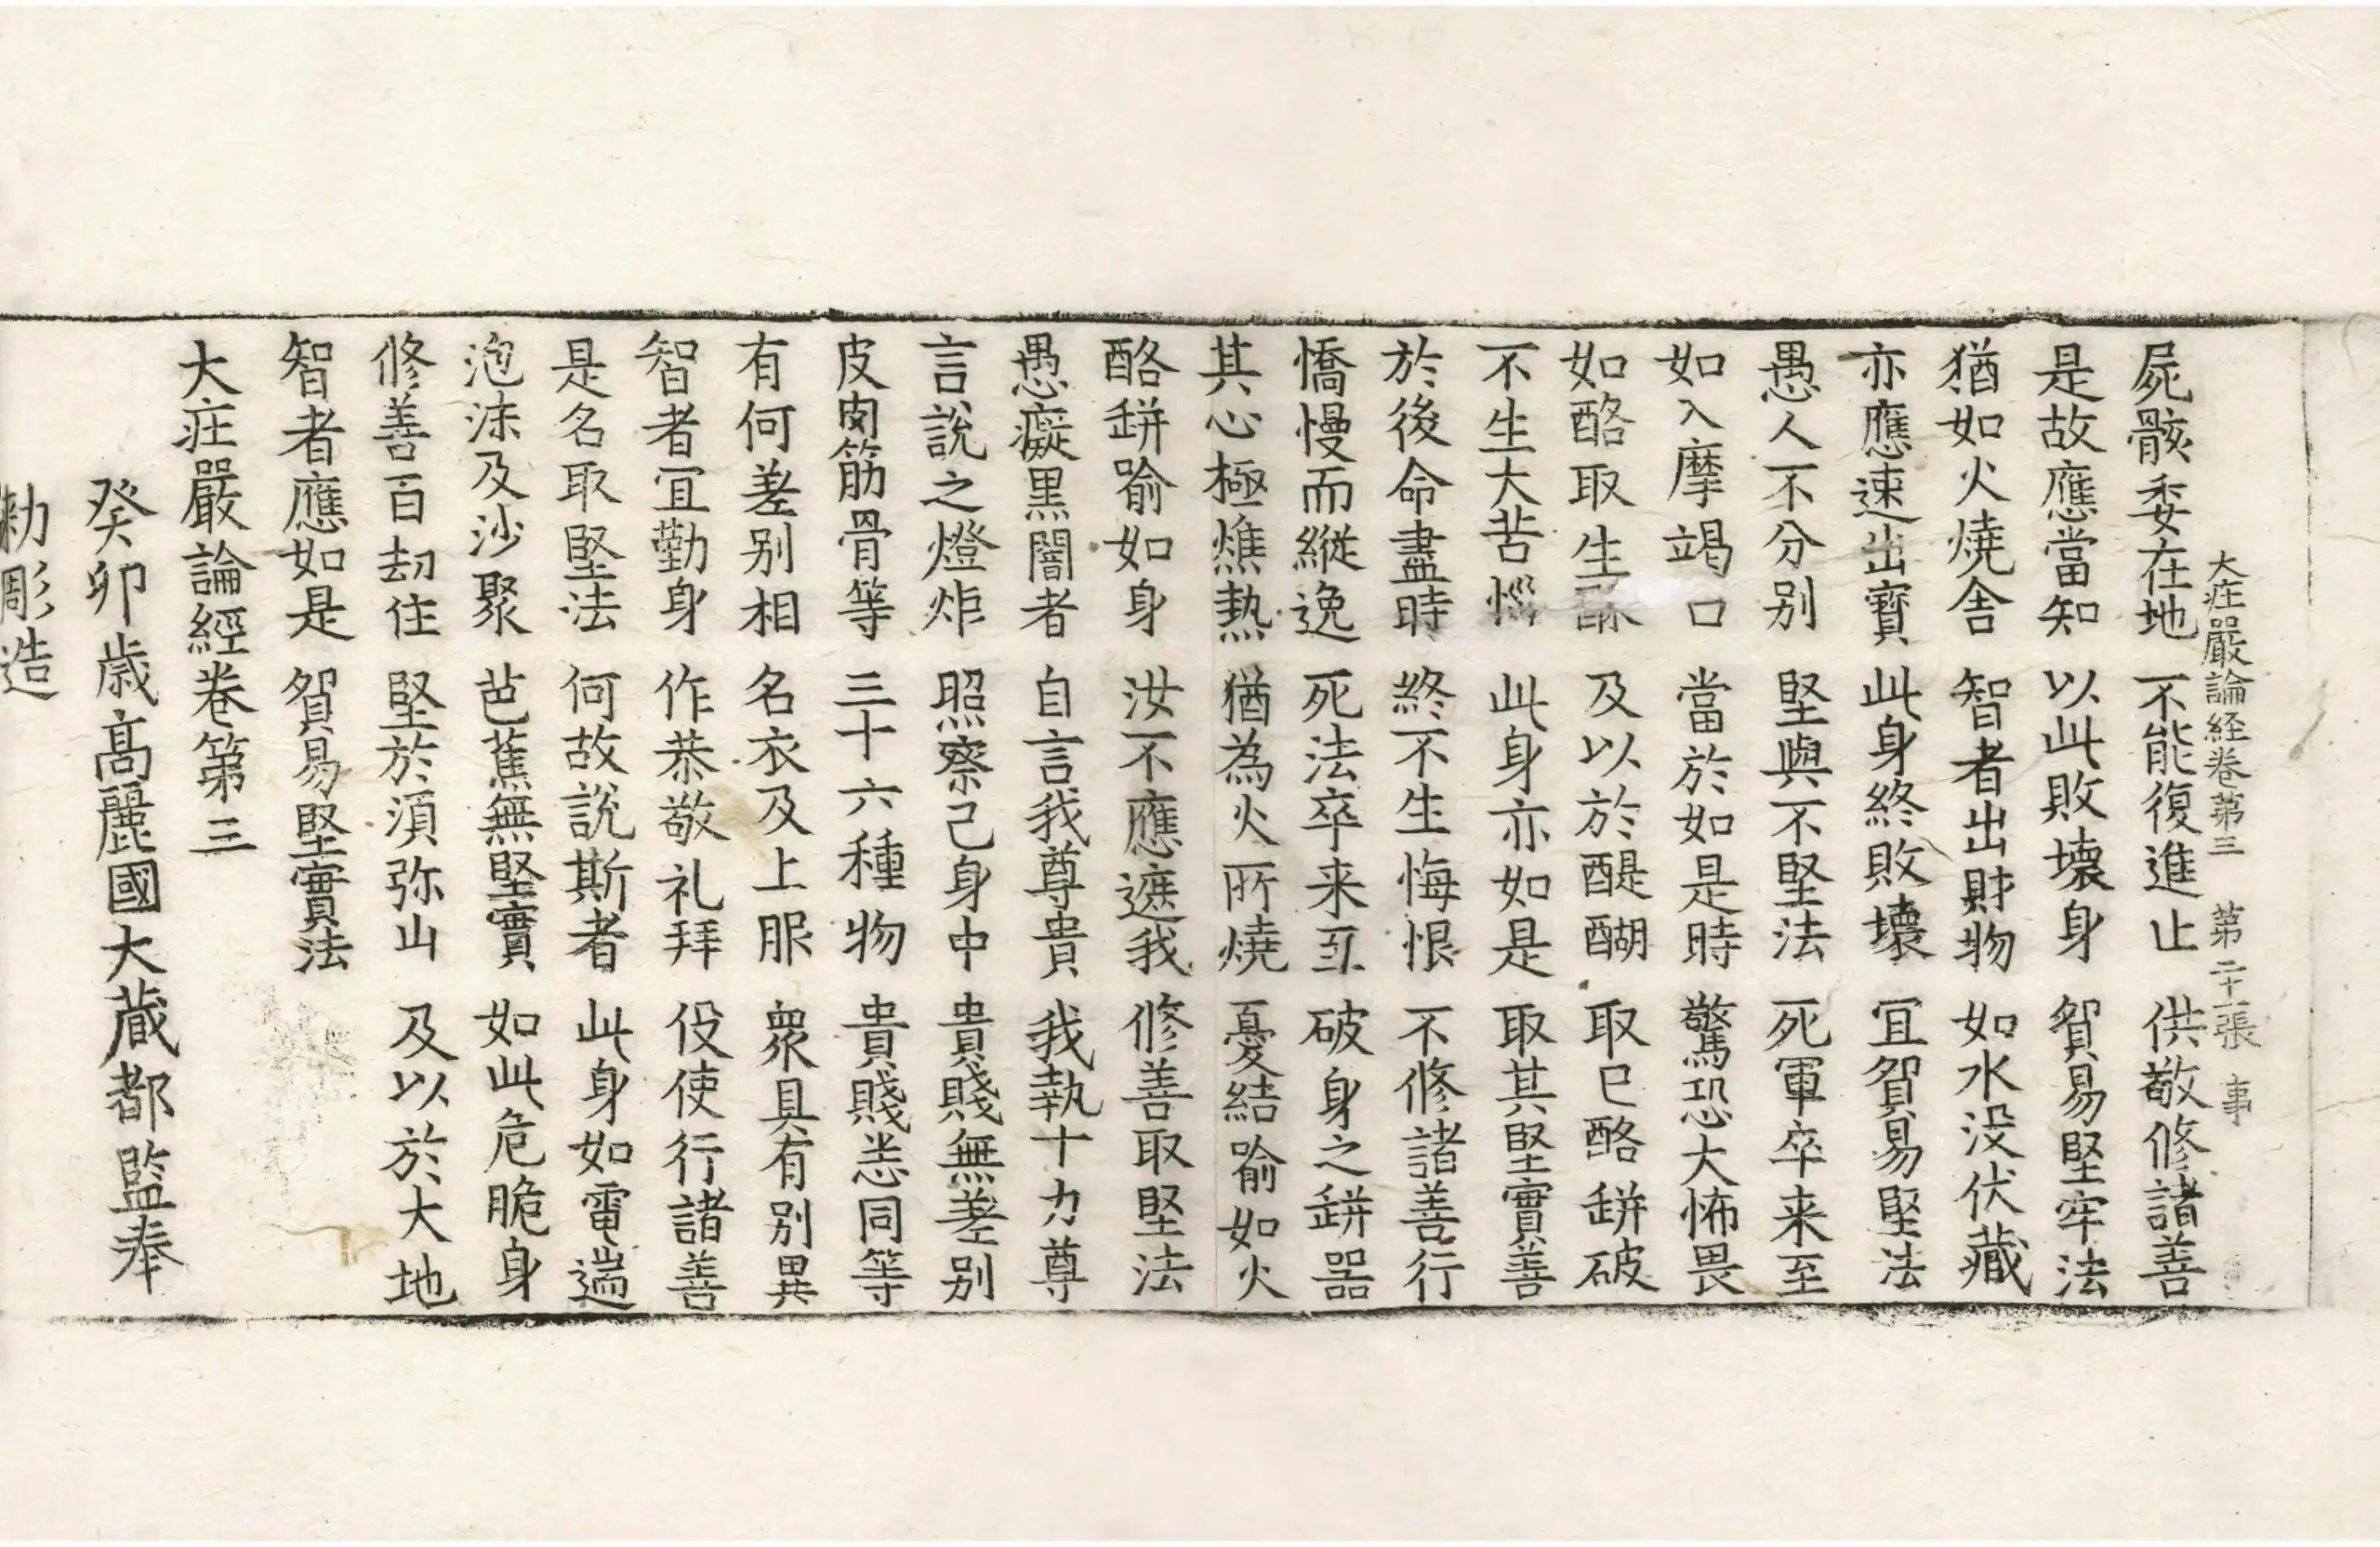 大荘嚴論経卷第三 第二十張 事
屍骸委在地 不能復進止 供敬修諸善
是故應當知 以此敗壞身 貿易堅牢法
猶如火燒舍 智者出財物 如水没伏藏
亦應速出寶 此身終敗壞 冝貿易堅法
愚人不分别 堅與不堅法 死軍卒来至
如入摩竭口 當於如是時 驚恐大怖畏
如酪取生酥 及以於醍醐 取已酪缾破
不生大苦惱 此身亦如是 取其堅實善
於後命盡時 終不生悔恨 不修諸善行
憍慢而縱逸 死法卒来至 破身之缾器
其心極燋熱 猶為火所燒 憂結喻如火
酪缾喻如身 汝不應遮我 修善取堅法
愚癡黒闇者 自言我尊貴 我執十力尊
言說之燈炬 照察己身中 貴賤無差别
皮肉筋骨等 三十六種物 貴賤悉同等
有何差别相 名衣及上服 衆具有别異
智者冝勤身 作恭敬礼拜 伇使行諸善
是名取堅法 何故說斯者 此身如電遄
泡沫及沙聚 芭蕉無堅實 如此危脆身
修善百劫住 堅於須弥山 及以於大地
智者應如是 貿易堅實法
大荘嚴論經卷第三
癸卯歳髙麗國大蔵都監奉
勅彫造